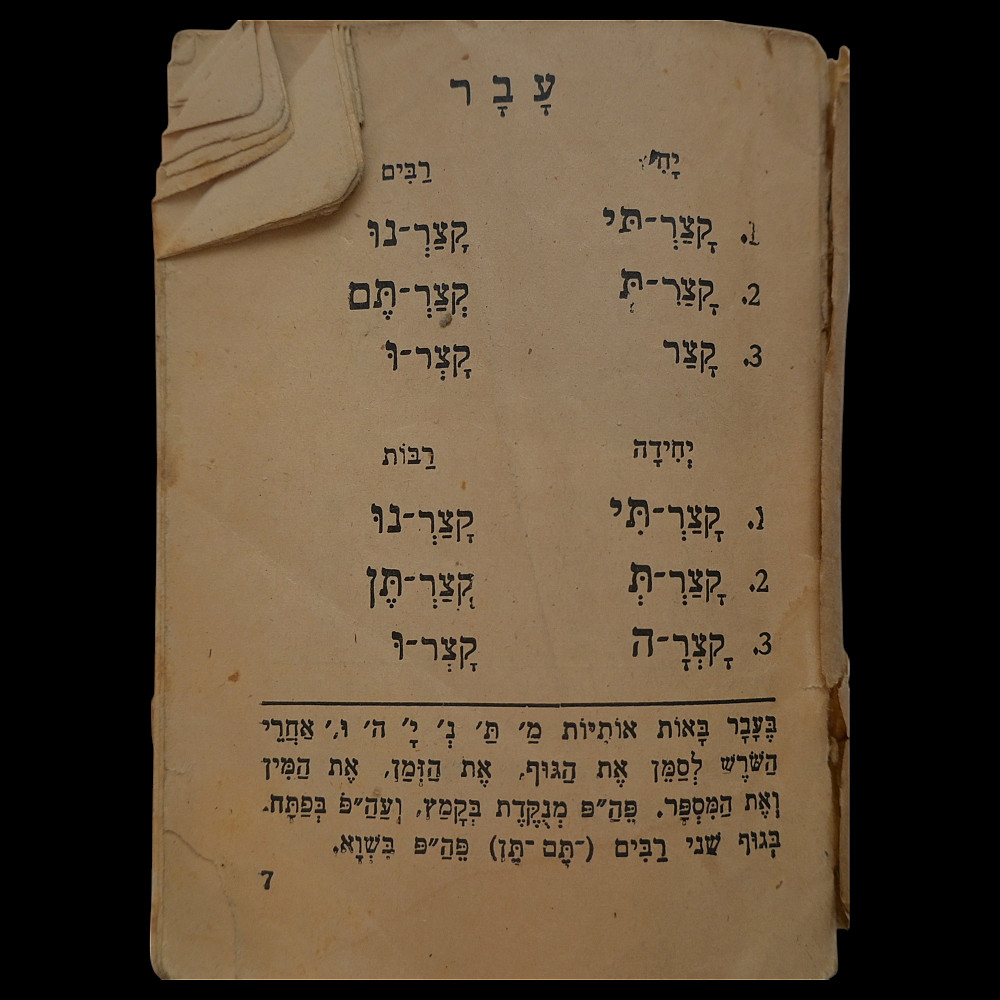 עָבָר
יָחִיד רַבִּים
1. קָצַרְ-תִּי קָצַרְ-נוּ
2. קָצַרְ-תָּ קְצַרְ-תֶּם
3. קָצַר קָצְר-וּ
יְחִידָה רַבּוֹת
1. קָצַרְ-תִּי קָצַרְ-נוּ
2. קָצַרְ-תְּ קְצַרְ-תֶּן
3. קָצְרָ-ה קָצְר-וּ
בֶּעָבָר בָּאוֹת אוֹתִיּוֹת מַ׳ תַּ׳ נְ׳ יָ׳ ה׳ וּ,׳ אַחֲרֵי
הַשֹּׁרֶשׁ לְסַמֵּן אֶת הַגּוּף, אֶת הַזְּמַן, אֶת הַמִּין
וְאֶת הַמִּסְפָּר. פֵּהַ״פּ מְנֻקֶּדֶת בְּקָמַץ, וְעַהַ״פּ בְּפַתָּח.
בְּגוּף שֵׁנִי רַבִּים (-תֶּם -תֶּן) פֵּהַ״פּ בִּשְׁוָא.
7